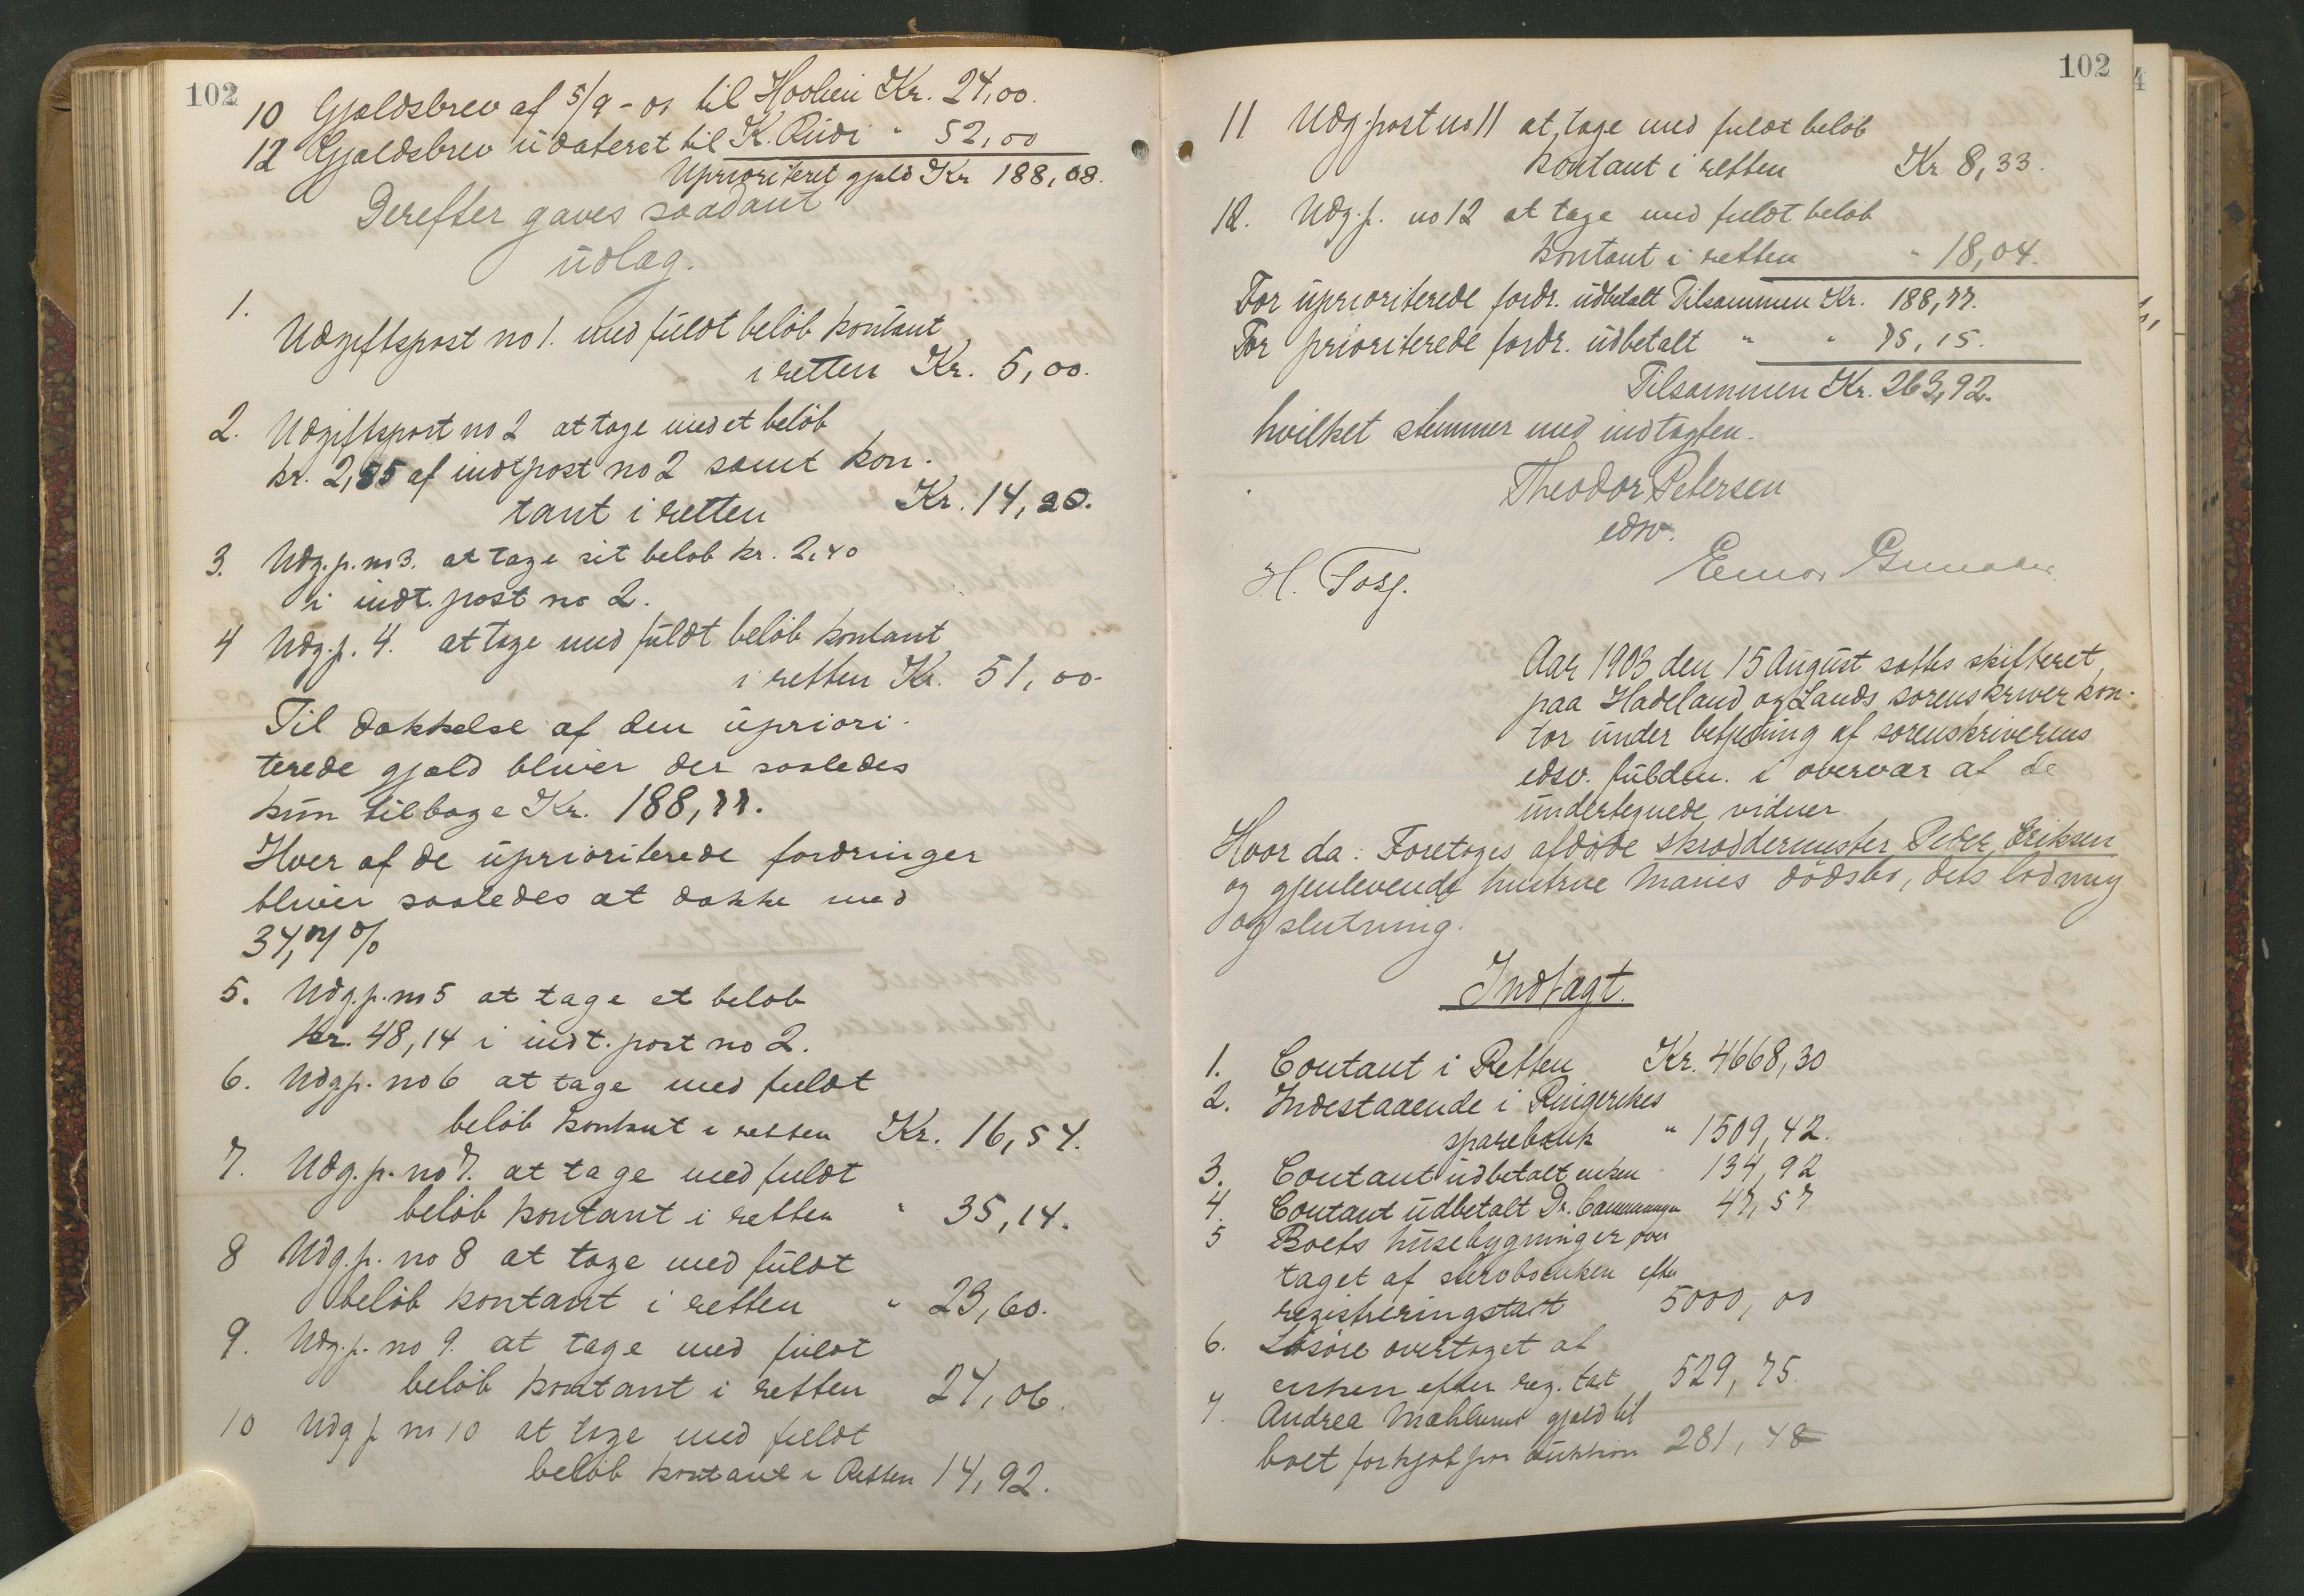 102
10 Gjældsbrev af 5/9 - 01 til Kr. 24,00.
12 Gjældsbrev udateret til K. Rudi " 52,00
Uprioriteret gjæld Kr 188,08.
Derefter gaves saadant
udlæg.
1.
Udgiftspost no 1. med fuldt beløb kontant
i retten Kr. 5,00.
2. Udgiftspost no 2 at tage med et beløb
kr. 2,55 af indtpost no 2 samt kon-
tant i retten Kr. 14,20.
3. Udg.p. no 3. at tage sit beløb kr. 2,40
i indt. post no 2.
4 Udg.p. 4. at tage med fuldt beløb kontant
i retten Kr. 51,00-
Til dækkelse af den upriori-
terede gjæld bliver der saaledes
kun tilbage Kr. 188,77.
Hver af de uprioriterede fordringer
bliver saaledes at dække med
34,71 %
5. Udg.p. no 5 at tage et beløb
Kr. 48,14 i indt. post no 2.
6. Udgp. no 6 at tage med fuldt
beløb kontant i retten Kr. 16,54.
7. Udg.p. no 7. at tage med fuldt
beløb kontant i retten " 35,14.
8 Udg.p. no 8 at tage med fuldt
beløb kontant i retten " 23,60.
9. Udg.p. no 9. at tage med fuldt
beløb kontant i retten 24,06.
10 Udg p no 10 at tage med fuldt
beløb kontant i Retten 14,92.
102
11 Udg.post no 11 at tage med fuldt beløb
kontant i retten Kr 8,33.
12. Udg.p. no 12 at tage med fuldt beløb
kontant i retten " 18,04.
For uprioriterede fordr. udbetalt Tilsammen Kr. 188,77.
For prioriterede fordr. udbetalt " " 75,15.
Tilsammen Kr. 263,92.
hvilket stemmer med indtægten.
Theodor Petersen
edsv.
H. Fosf. Einar
Aar 1903 den 15 August sattes skifteret
paa Hadeland og Lands sorenskriverkon-
tor under betjening af sorenskriverens
edsv. fuldm. i overvær af de
undertegnede vidner.
Hvor da: Foretoges afdøde skræddermester Peder Eriksen
og gjenlevende hustrue Maries dødsbo, dets lodning
og slutning.
Indtægt.
1. Contant i Retten Kr. 4668,30
2. Indestaaende i Ringerikes
sparebank " 1509,42.
3. Contant udbetalt enken 134,92
4. Contant udbetalt Dr. 47,57
5 Boets husebygninger over
taget af sterboenken efter
registreringstaxt 5000,00
6. Løsøre overtaget af
enken efter reg. taxt 529,75.
7. Andrea Mæhlums gjæld til
boet for kjøb paa auktion 281,48